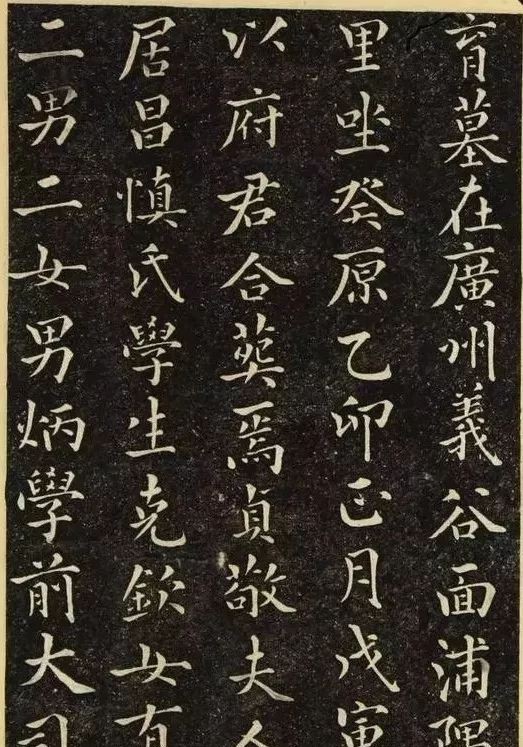 育墓在廣州義谷面浦隅
里坐癸原乙卯正月戊寅
以府君合葬焉貞敬夫人
居昌愼氏學生克欽女有
二男二女男炳學前大司